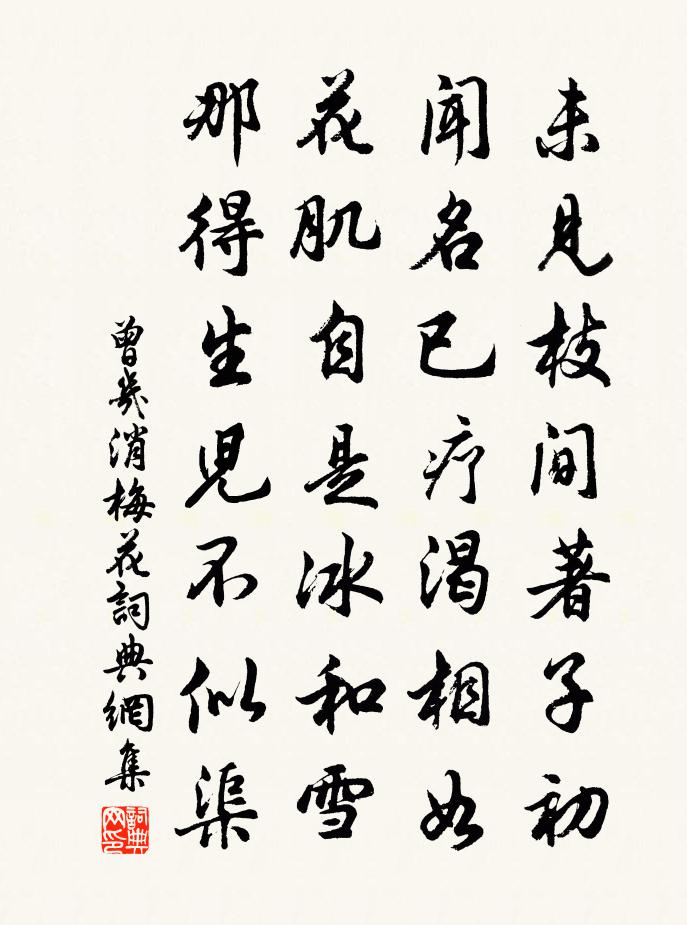 未見枝間著子初
聞名已疗渴相如
花肌自是冰和雪
那得生児不似渠
曾幾消梅花詞典網集
詞典网印